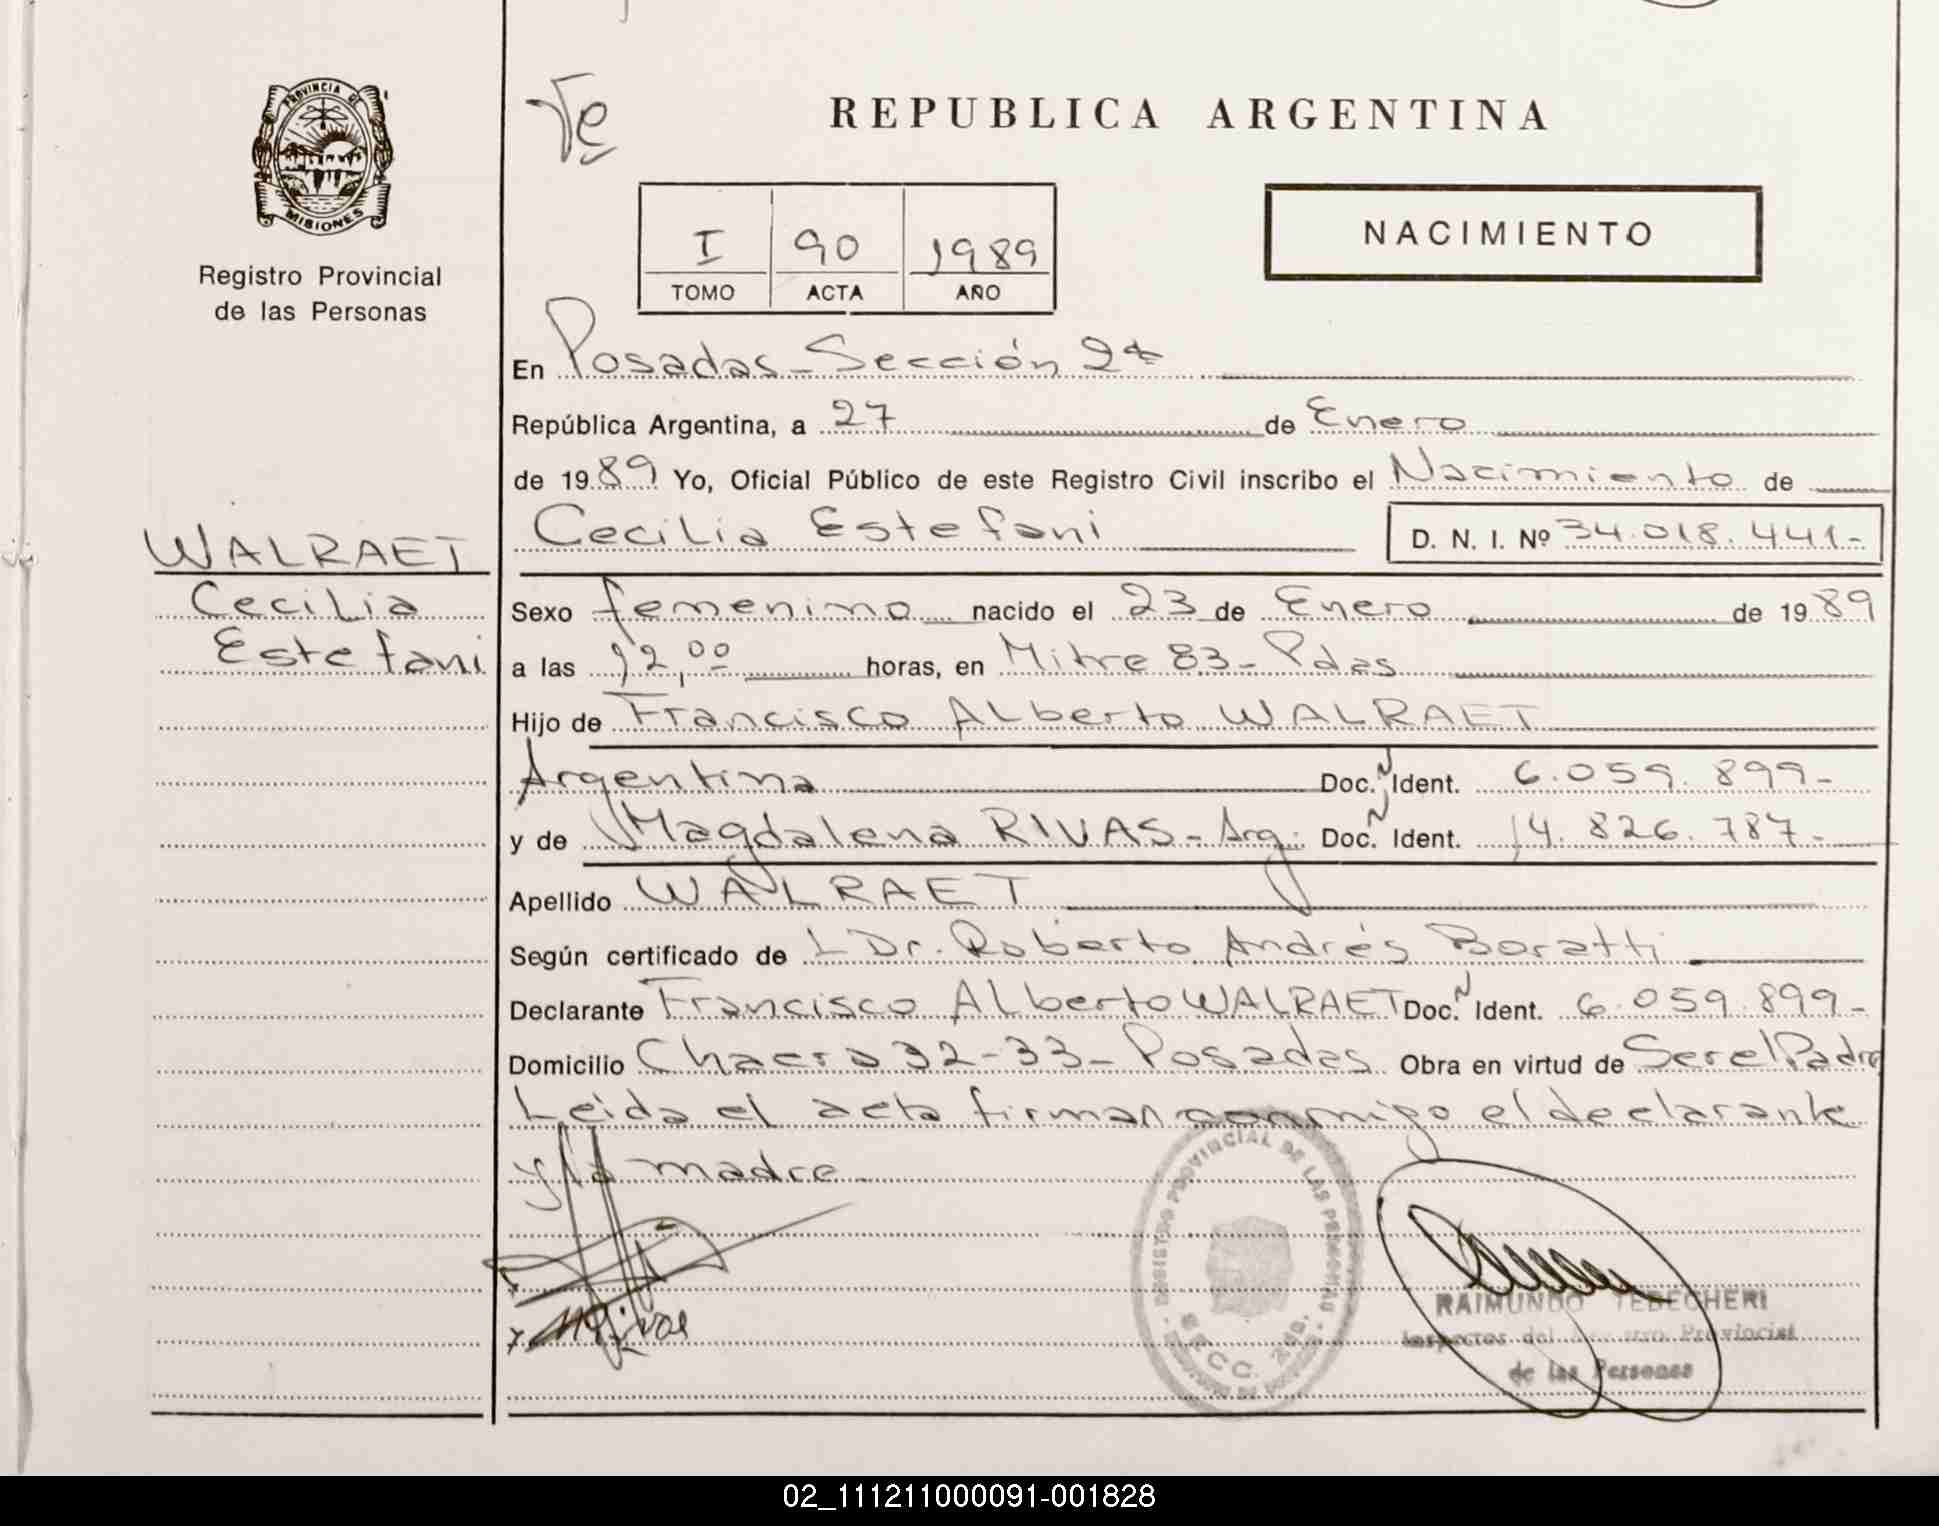 PROVINCIA DE
MISIONES
Registro Provincial
de las Personas
REPUBLICA ARGENTINA
NACIMIENTO
I 90 1989
TOMO ACTA AÑO
En Posadas - Sección 2ª
República Argentina, a 27 de Enero
de 1989 Yo, Oficial Público de este Registro Civil inscribo el Nacimiento de
Cecilia Estefani D. N. I. Nº 34.018.441-
WALRAET
Cecilia
Estefani
Sexo femenino nacido el 23 de Enero de 1989
a las 12,00 horas, en Mitre 83 - Pdas
Hijo de Francisco Alberto WALRAET
Argentina Doc. Ident. 6.059.899-
y de Magdalena RIVAS - Arg. Doc. Ident. 14.826.787-
Apellido WALRAET
Según certificado de L Dr. Roberto Andrés Boratti
Declarante Francisco Alberto WALRAET Doc. Ident. 6.059.899-
Domicilio Chacra 32-33 - Posadas Obra en virtud de Ser el Padre
Leida el acta firman conmigo el declarante
y la madre
REGISTRO PROVINCIAL DE LAS PERSONAS
SECC. 2da.
MRivas
RAIMUNDO TEBECHERI
Inspector del Registro Provincial
de las Personas
02_111211000091-001828